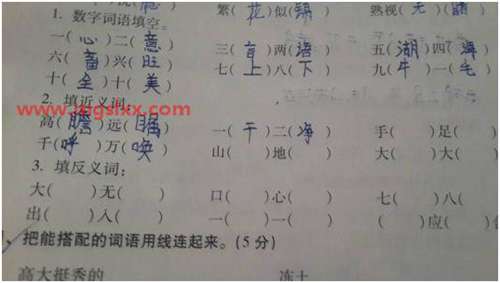 繁(花)似(锦) 熟视(无)(睹)
1. 数字词语填空。
一(心)二(意) 三(言)两(语) 五(湖)四(海)
六(畜)兴(旺) 七(上)八(下) 九(牛)一(毛)
十(全)十(美)
www.zqgslxx.com
2. 填近义词：
高(瞻)远(瞩) 一(干)二(净) 手( )足( )
千(呼)万(唤) 山( )地( ) 大( )大( )
3. 填反义词：
大( )无( ) 口( )心( ) 七( )八( )
出( )入( ) 一( )一( ) ( )应( )
把能搭配的词语用线连起来。(5分)
高大挺秀的 冻土